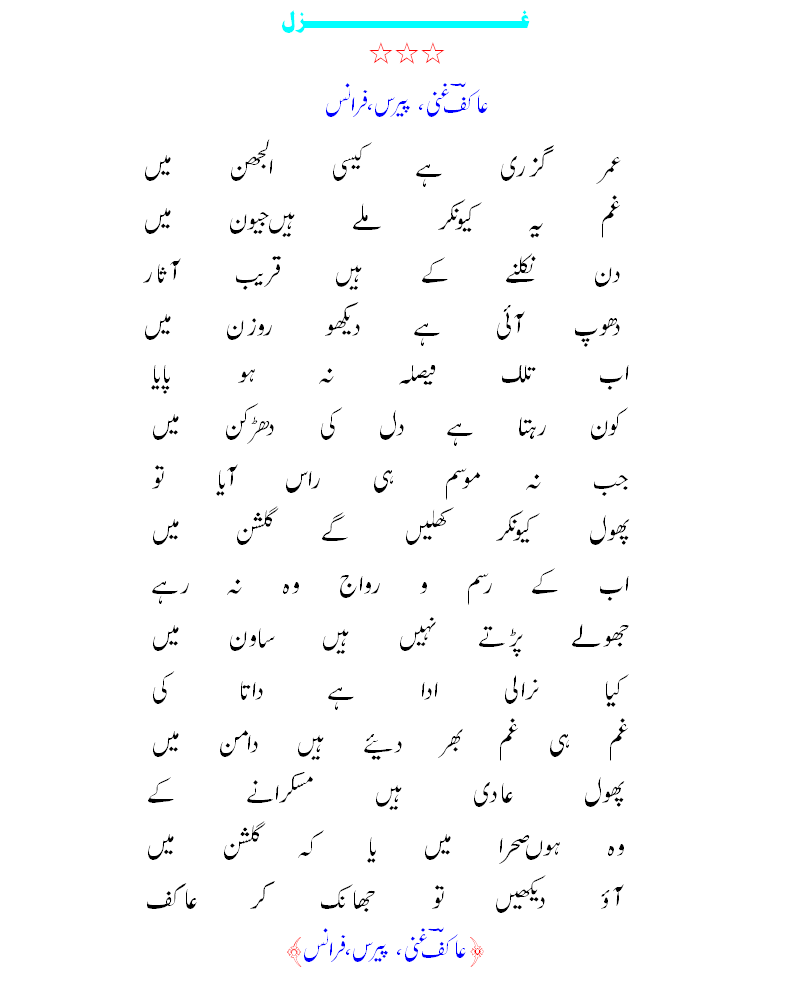 غـــــزل
☆☆☆
عاکفؔ غنی، پیرس،فرانس
عمر گزری ہے کیسی الجھن میں
غم یہ کیونکر ملے ہیں جیون میں
دن نکلنے کے ہیں قریب آثار
دھوپ آئی ہے دیکھو روزن میں
اب تلک فیصلہ نہ ہو پایا
کون رہتا ہے دل کی دھڑکن میں
جب نہ موسم ہی راس آیا تو
پھول کیونکر کھلیں گے گلشن میں
اب کے رسم و رواج وہ نہ رہے
جھولے پڑتے نہیں ہیں ساون میں
کیا نرالی ادا ہے داتا کی
غم ہی غم بھر دیئے ہیں دامن میں
پھول عادی ہیں مسکرانے کے
وہ ہوں صحرا میں یا کہ گلشن میں
آؤ دیکھیں تو جھانک کر عاکف
﴿عاکفؔ غنی، پیرس،فرانس﴾